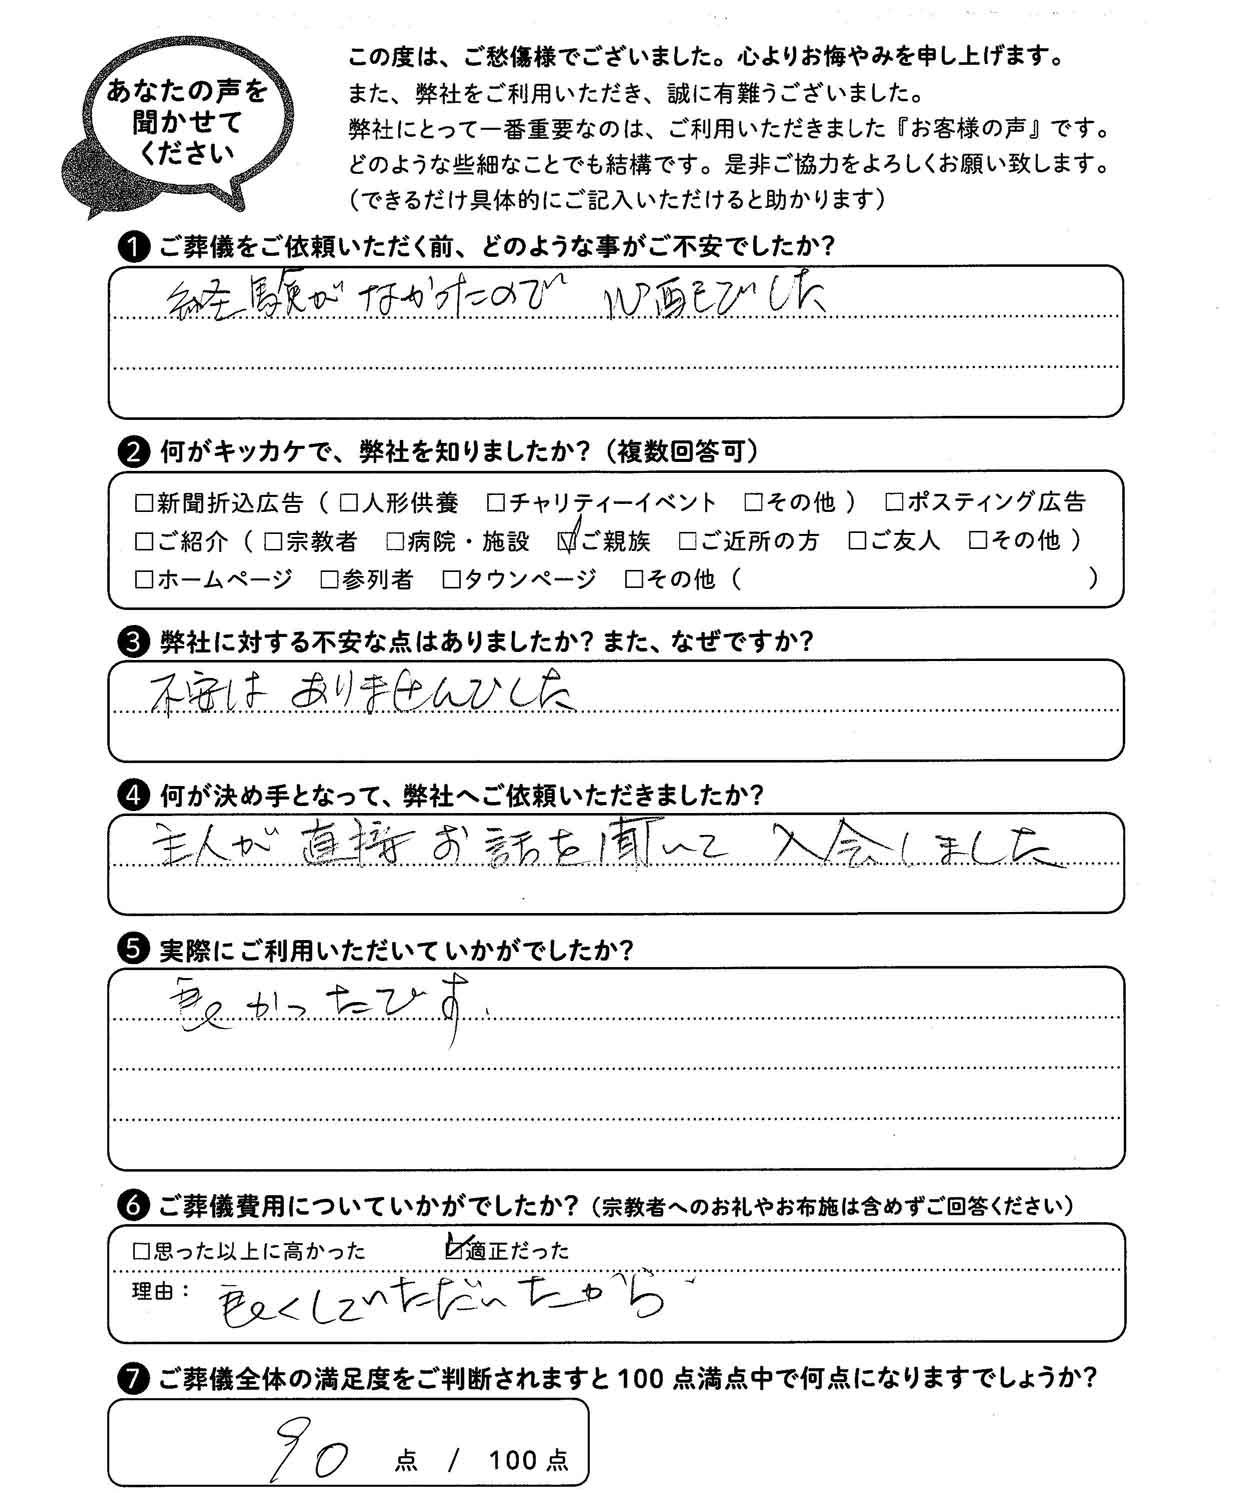 あなたの声を
聞かせて
ください
この度は、ご愁傷様でございました。心よりお悔やみを申し上げます。
また、弊社をご利用いただき、誠に有難うございました。
弊社にとって一番重要なのは、ご利用いただきました『お客様の声』です。
どのような些細なことでも結構です。是非ご協力をよろしくお願い致します。
（できるだけ具体的にご記入いただけると助かります）
❶ ご葬儀をご依頼いただく前、どのような事がご不安でしたか？
経験がなかったので 心配でした
❷ 何がキッカケで、弊社を知りましたか？（複数回答可）
□新聞折込広告（ □人形供養 □チャリティーイベント □その他 ） □ポスティング広告
□ご紹介（ □宗教者 □病院・施設 ☑ご親族 □ご近所の方 □ご友人 □その他 ）
□ホームページ □参列者 □タウンページ □その他（ ）
❸ 弊社に対する不安な点はありましたか？また、なぜですか？
不安は ありませんでした
❹ 何が決め手となって、弊社へご依頼いただきましたか？
主人が直接お話を聞いて 入会しました
❺ 実際にご利用いただいていかがでしたか？
良かったです.
❻ ご葬儀費用についていかがでしたか？（宗教者へのお礼やお布施は含めずご回答ください）
□思った以上に高かった ☑適正だった
理由： 良くしていただいたから
❼ ご葬儀全体の満足度をご判断されますと100点満点中で何点になりますでしょうか？
90 点 / 100点